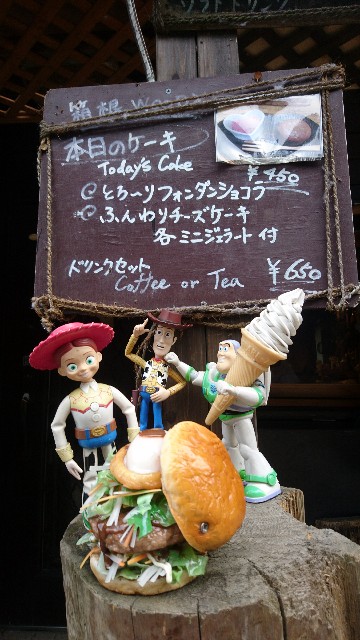 ソフトドリンク
箱根
本日のケーキ
Today's Cake
¥450
とろ〜りフォンダンショコラ
ふんわりチーズケーキ
各ミニジェラート付
ドリンクセット
Coffee or Tea ¥650